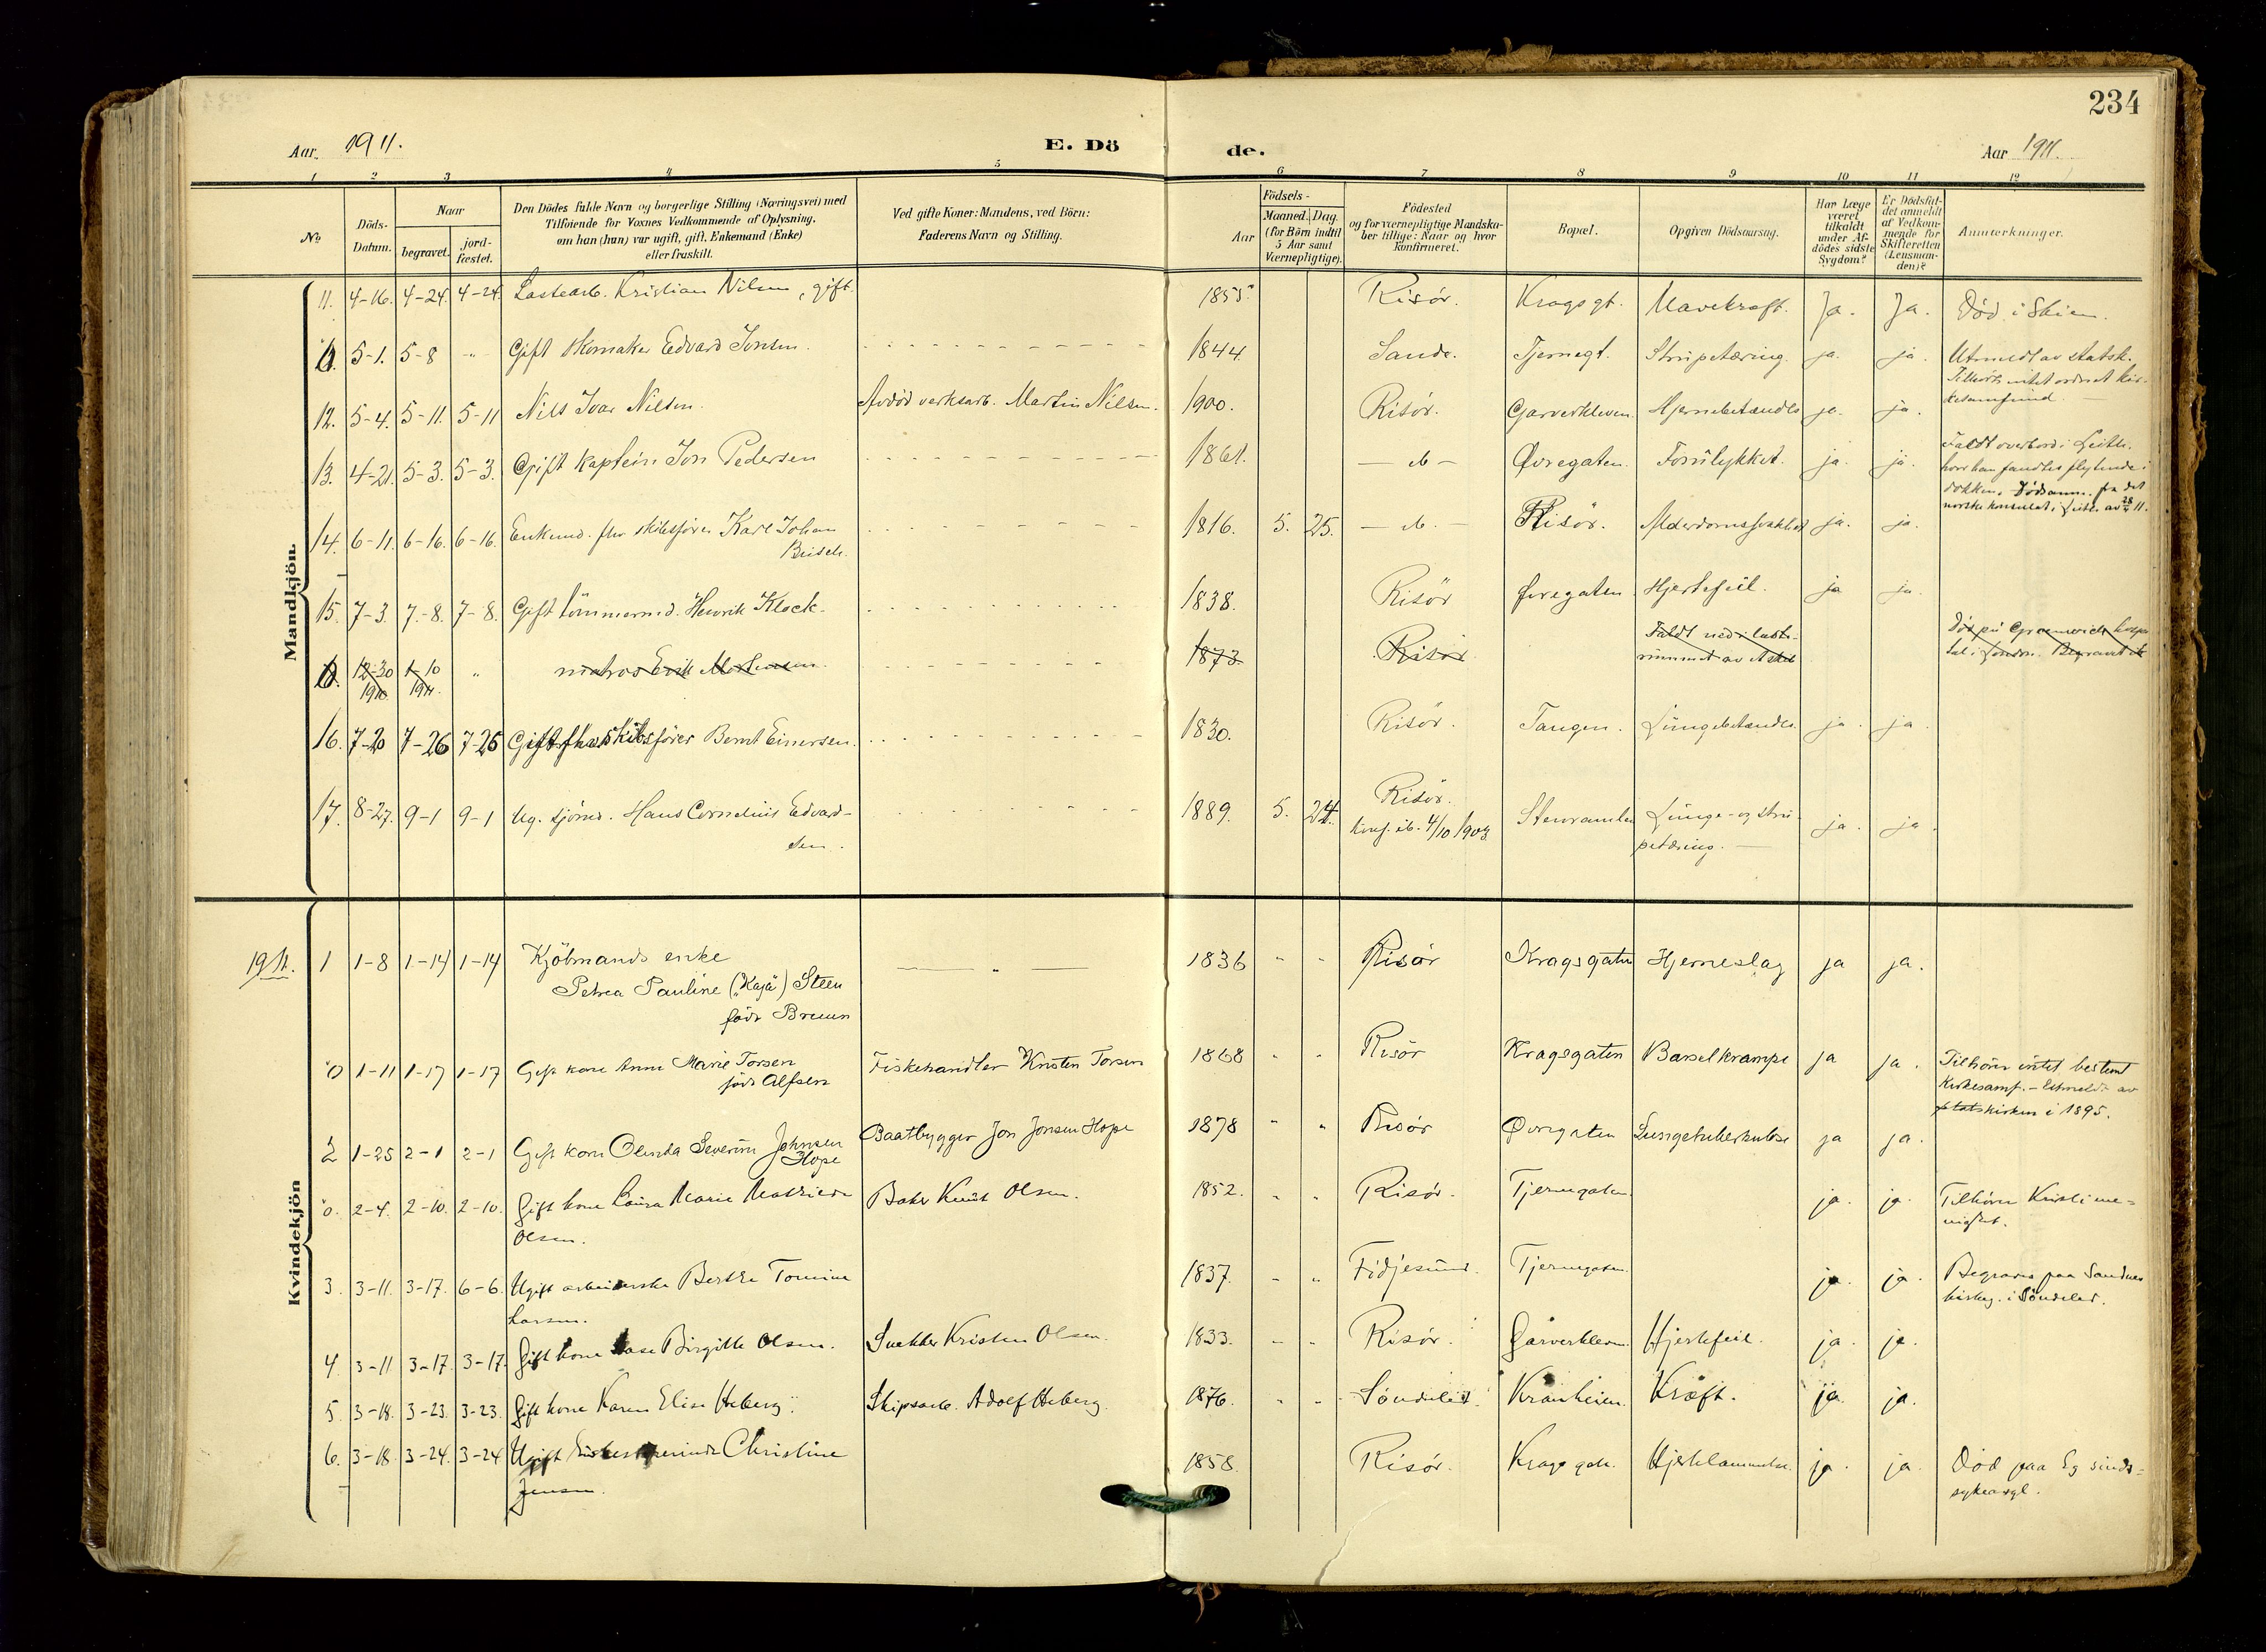 234
Aar 1911.
E. Döde.
Aar 1911.
1 2 3 4 5 6 7 8 9 10 11 12
No
Döds-Datum.
Naar
begravet.
jordfæstet.
Den Dödes fulde Navn og borgerlige Stilling (Næringsvei) med
Tilföiende for Voxnes Vedkommende af Oplysning,
om han (hun) var ugift, gift, Enkemand (Enke)
eller fraskilt.
Ved gifte Koner: Mandens, ved Börn:
Faderens Navn og Stilling.
Födsels-
Aar
Maaned. Dag.
(for Börn indtil
5 Aar samt
Værnepligtige).
Födested
og for værnepligtige Mandska-
ber tillige: Naar og hvor
konfirmeret.
Bopæl.
Opgiven Dödsaarsag.
Har Læge
været
tilkaldt
under Af-
dödes sidste
Sygdom?
Er Dödsfal-
det anmeldt
af Vedkom-
mende for
Skifteretten
(Lensman-
den)?
Anmærkninger.
Mandkjön.
11. 4-16. 4-24. 4-24. Lastearb. Kristian Nilsen, gift. 1855 Risör. Kragsgt. Mavekræft. Ja. Ja. Död i Skien.
0. 5-1. 5-8 " Gift skomaker Edvard Jonsen. 1844. Sande. Tjernegt. Strupetæring. ja. ja. Utmeldt av statsk.
Tilhörte intet ordnet kir-
kesamfund.
12. 5-4. 5-11. 5-11 Nils Ivar Nilsen. Avdöd verksarb. Martin Nilsen. 1900. Risör. Garverkleven. Hjernebetændls ja. ja.
13. 4-21. 5-3. 5-3. Gift kaptein Jon Pedersen 1861. — " — Øvregaten. Forulykket. ja. ja. Faldt overbord i Leith.
hvor han fandtes flytende i
dokken. Dödsanm. fra det
norske konsulat i Leith av 28/4 11.
14. 6-11. 6-16. 6-16. Enkemd. fhv skibsförer Karl Johan
1816. 5. 25. Risör. Alderdomssvakhet ja. ja.
15. 7-3. 7-8. 7-8. Gift tömmermd. Henrik Klock. 1838. Risör Øvregaten Hjertefeil. ja ja.
0. 12-30 1910 1-10 1911. " matros Erik Mortensen 1873 Risör Faldt ned i laste-
rummet av et skib
Död på Greenwich hospi-
tal i London. Begravet
16. 7-20 7-26 7-26 Gift fhv skibsförer Bernt Einersen. 1830. Risör. Tangen. Lungebetændls. ja. ja.
17. 8-27. 9-1 9-1 Ug. sjömd. Hans Cornelius Edvard-
sen.
1889. 5. 24. Risör.
Konf. ib. 4/10 1903
Stenramlen Lunge- og stru-
petæring. ja. ja.
Kvindekjön
1911. 1 1-8 1-14 1-14 Kjöbmands enke
Petrea Pauline ("Kaja") Steen
född Bruun
1836 " " Risör Kragsgaten Hjerneslag ja ja.
0 1-11 1-17 1-17 Gift kone Anne Marie Torsen
född Alfsen
Fiskehandler Knsten Torsen 1868 " " Risör Kragsgaten Barselkrampe ja ja. Tilhörer intet bestemt
kirkesamf. - Utmeldt av
statskirken i 1895.
2 1-25 2-1 2-1 Gift kone Olinda Severine Johnsen
Hope
Baatbygger Jon Jonsen Hope 1878 " " Risör Øvregaten Lungetuberkulose ja ja.
0. 2-4. 2-10. 2-10. Gift kone Laura Marie Mathilde
Olsen.
Baker Knut Olsen. 1852. " " Risör. Tjernegaten. ja. ja. Tilhörer Kristi me-
nighet.
3. 3-11. 3-17. 6-6. Ugift arbeiderske Berthe Tomine
Larsen.
1837. " " Fidjesund. Tjernegaten. ja. ja. Begraves paa Sandnes
kirkeg. i Söndeled.
4. 3-11 3-17. 3-17. Gift kone Aase Birgitte Olsen. Snekker Kristen Olsen. 1833. " " Risör. Garverkleven. Hjertefeil. ja. ja.
5. 3-18. 3-23. 3-23. Gift kone Karen Elise Heberg. Skipsarb. Adolf Heberg. 1876. " " Söndeled. Kranheien. Kræft. ja. ja.
6. 3-18. 3-24. 3-24 Ugift Christine
Jensen.
1858. Risör. Kragsgate. Hjertelammelse. ja. ja. Död paa Eg sinds-
sykeasyl.